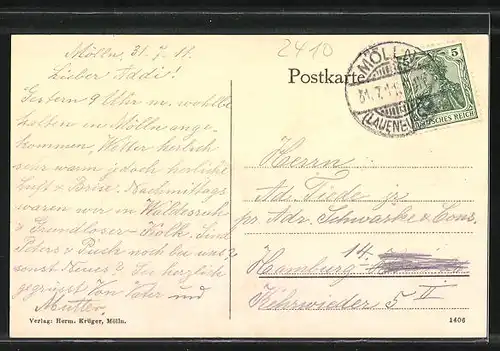 2410
Mölln, 31.7.11.
Lieber Addi!
Gestern 9 Uhr m. wohlbe
halten in Mölln ange-
kommen, Wetter herrlich
sehr warm jedoch herrliche
Luft &
Nachmittags
waren wir in Waldesruh
& Grundloser Kolk. Sind
Peters & noch bei uns?
sonst Neues? Sei herzlich
gegrüsst von Vater und
Mutter.
Verlag: Herm. Krüger, Mölln.
Postkarte
MÖLLN
31.7.11
(LAUENB
5
DEUTSCHES REICH
Herrn
Ad. Tiede jr
pr. Adr. Schwarke & Cons.
Hamburg 14.
Kehrwieder 5 II
1406